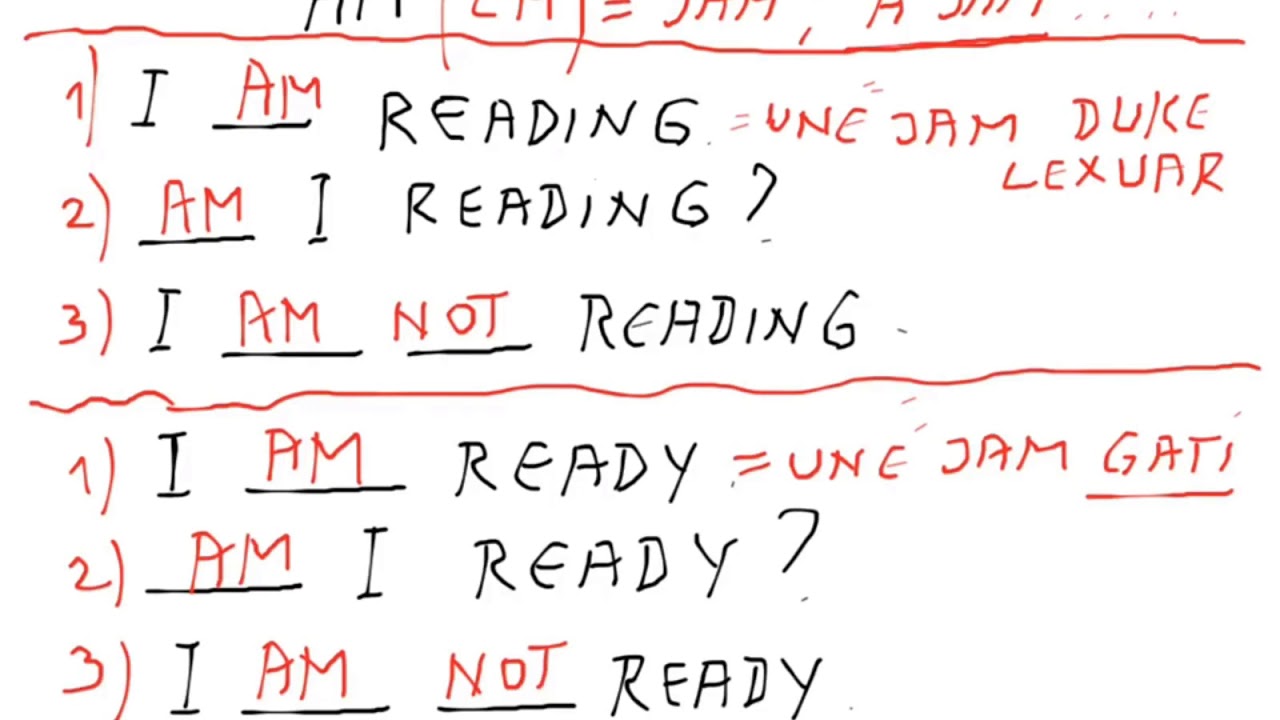 AM [EM] = JAM, A JAM.....
1) I AM READING. = UNË JAM DUKE
LEXUAR
2) AM I READING?
3) I AM NOT READING.
1) I AM READY. = UNË JAM GATI
2) AM I READY?
3) I AM NOT READY.